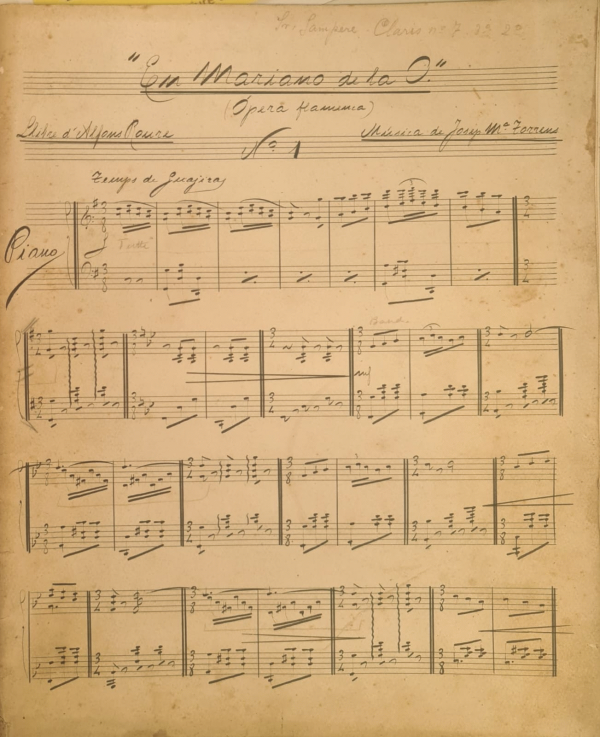 Sr. Sampere - Claris nº 7 - 2º 2ª
"Em Mariano de la O."
(Ópera flamenca)
Llibre d'Alfons Roure
Música de Josep Mª Torrens
Nº 1
Tempo de Guajiras
Piano
Tutti